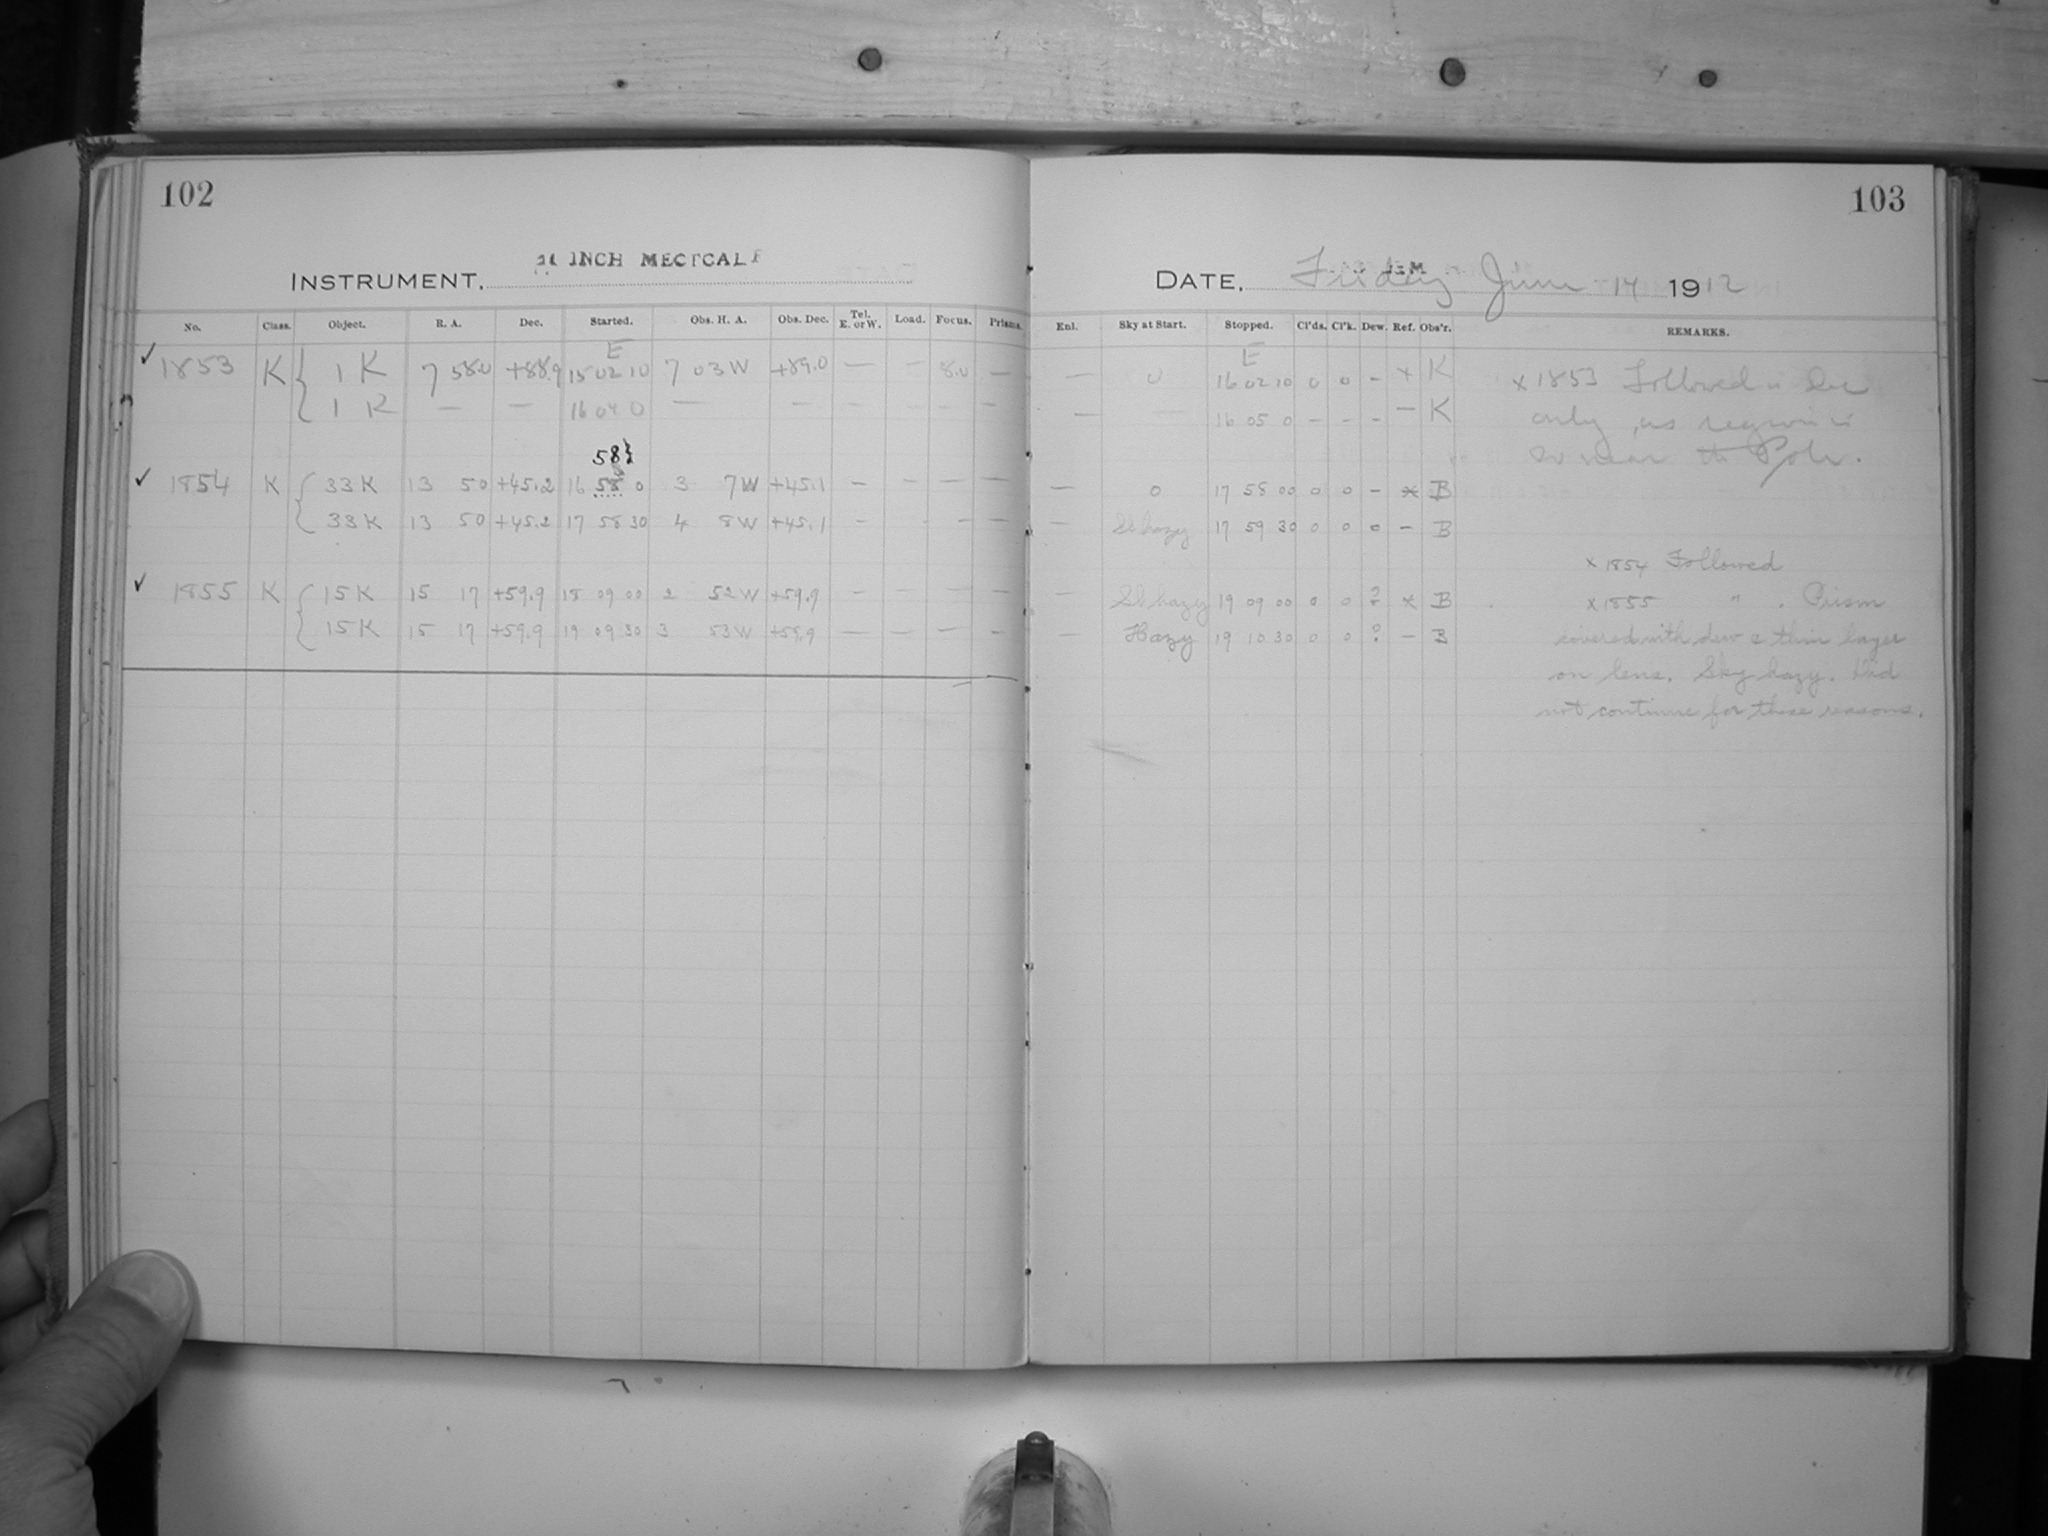 102
INCH METCALF
INSTRUMENT,
No. Class. Object. R. A. Dec. Started. Obs. H. A. Obs. Dec. Tel. E. or W. Load. Focus. Prisms.
E
✓ 1853 K { 1 K 7 58.0 +88.9 15 02 10 7 03 W +89.0 — — 8.0 —
1 K — — 16 04 0 — — — — — —
58
✓ 1854 K { 33 K 13 50 +45.2 16 58 0 3 7 W +45.1 — — — —
33 K 13 50 +45.2 17 58 30 4 8 W +45.1 — - — —
✓ 1855 K { 15 K 15 17 +59.9 18 09 00 2 52 W +59.9 — — — —
15 K 15 17 +59.9 19 09 30 3 53 W +59.9 — — — —
103
DATE, Friday June 14 1912
Enl. Sky at Start. Stopped. Cl'ds. Cl'k. Dew. Ref. Obs'r. REMARKS.
E
— 0 16 02 10 0 0 - x K x 1853 Followed in
— 16 05 0 - - - — K only, as region is
so near the Pole.
— 0 17 58 00 0 0 - x B
— Sl hazy 17 59 30 0 0 0 - B
x 1854 Followed
— Sl hazy 19 09 00 0 0 ? x B x 1855 " . Prism
— Hazy 19 10 30 0 0 ? - B covered with dew & thin layer
on lens. Sky hazy. Did
not continue for these reasons.